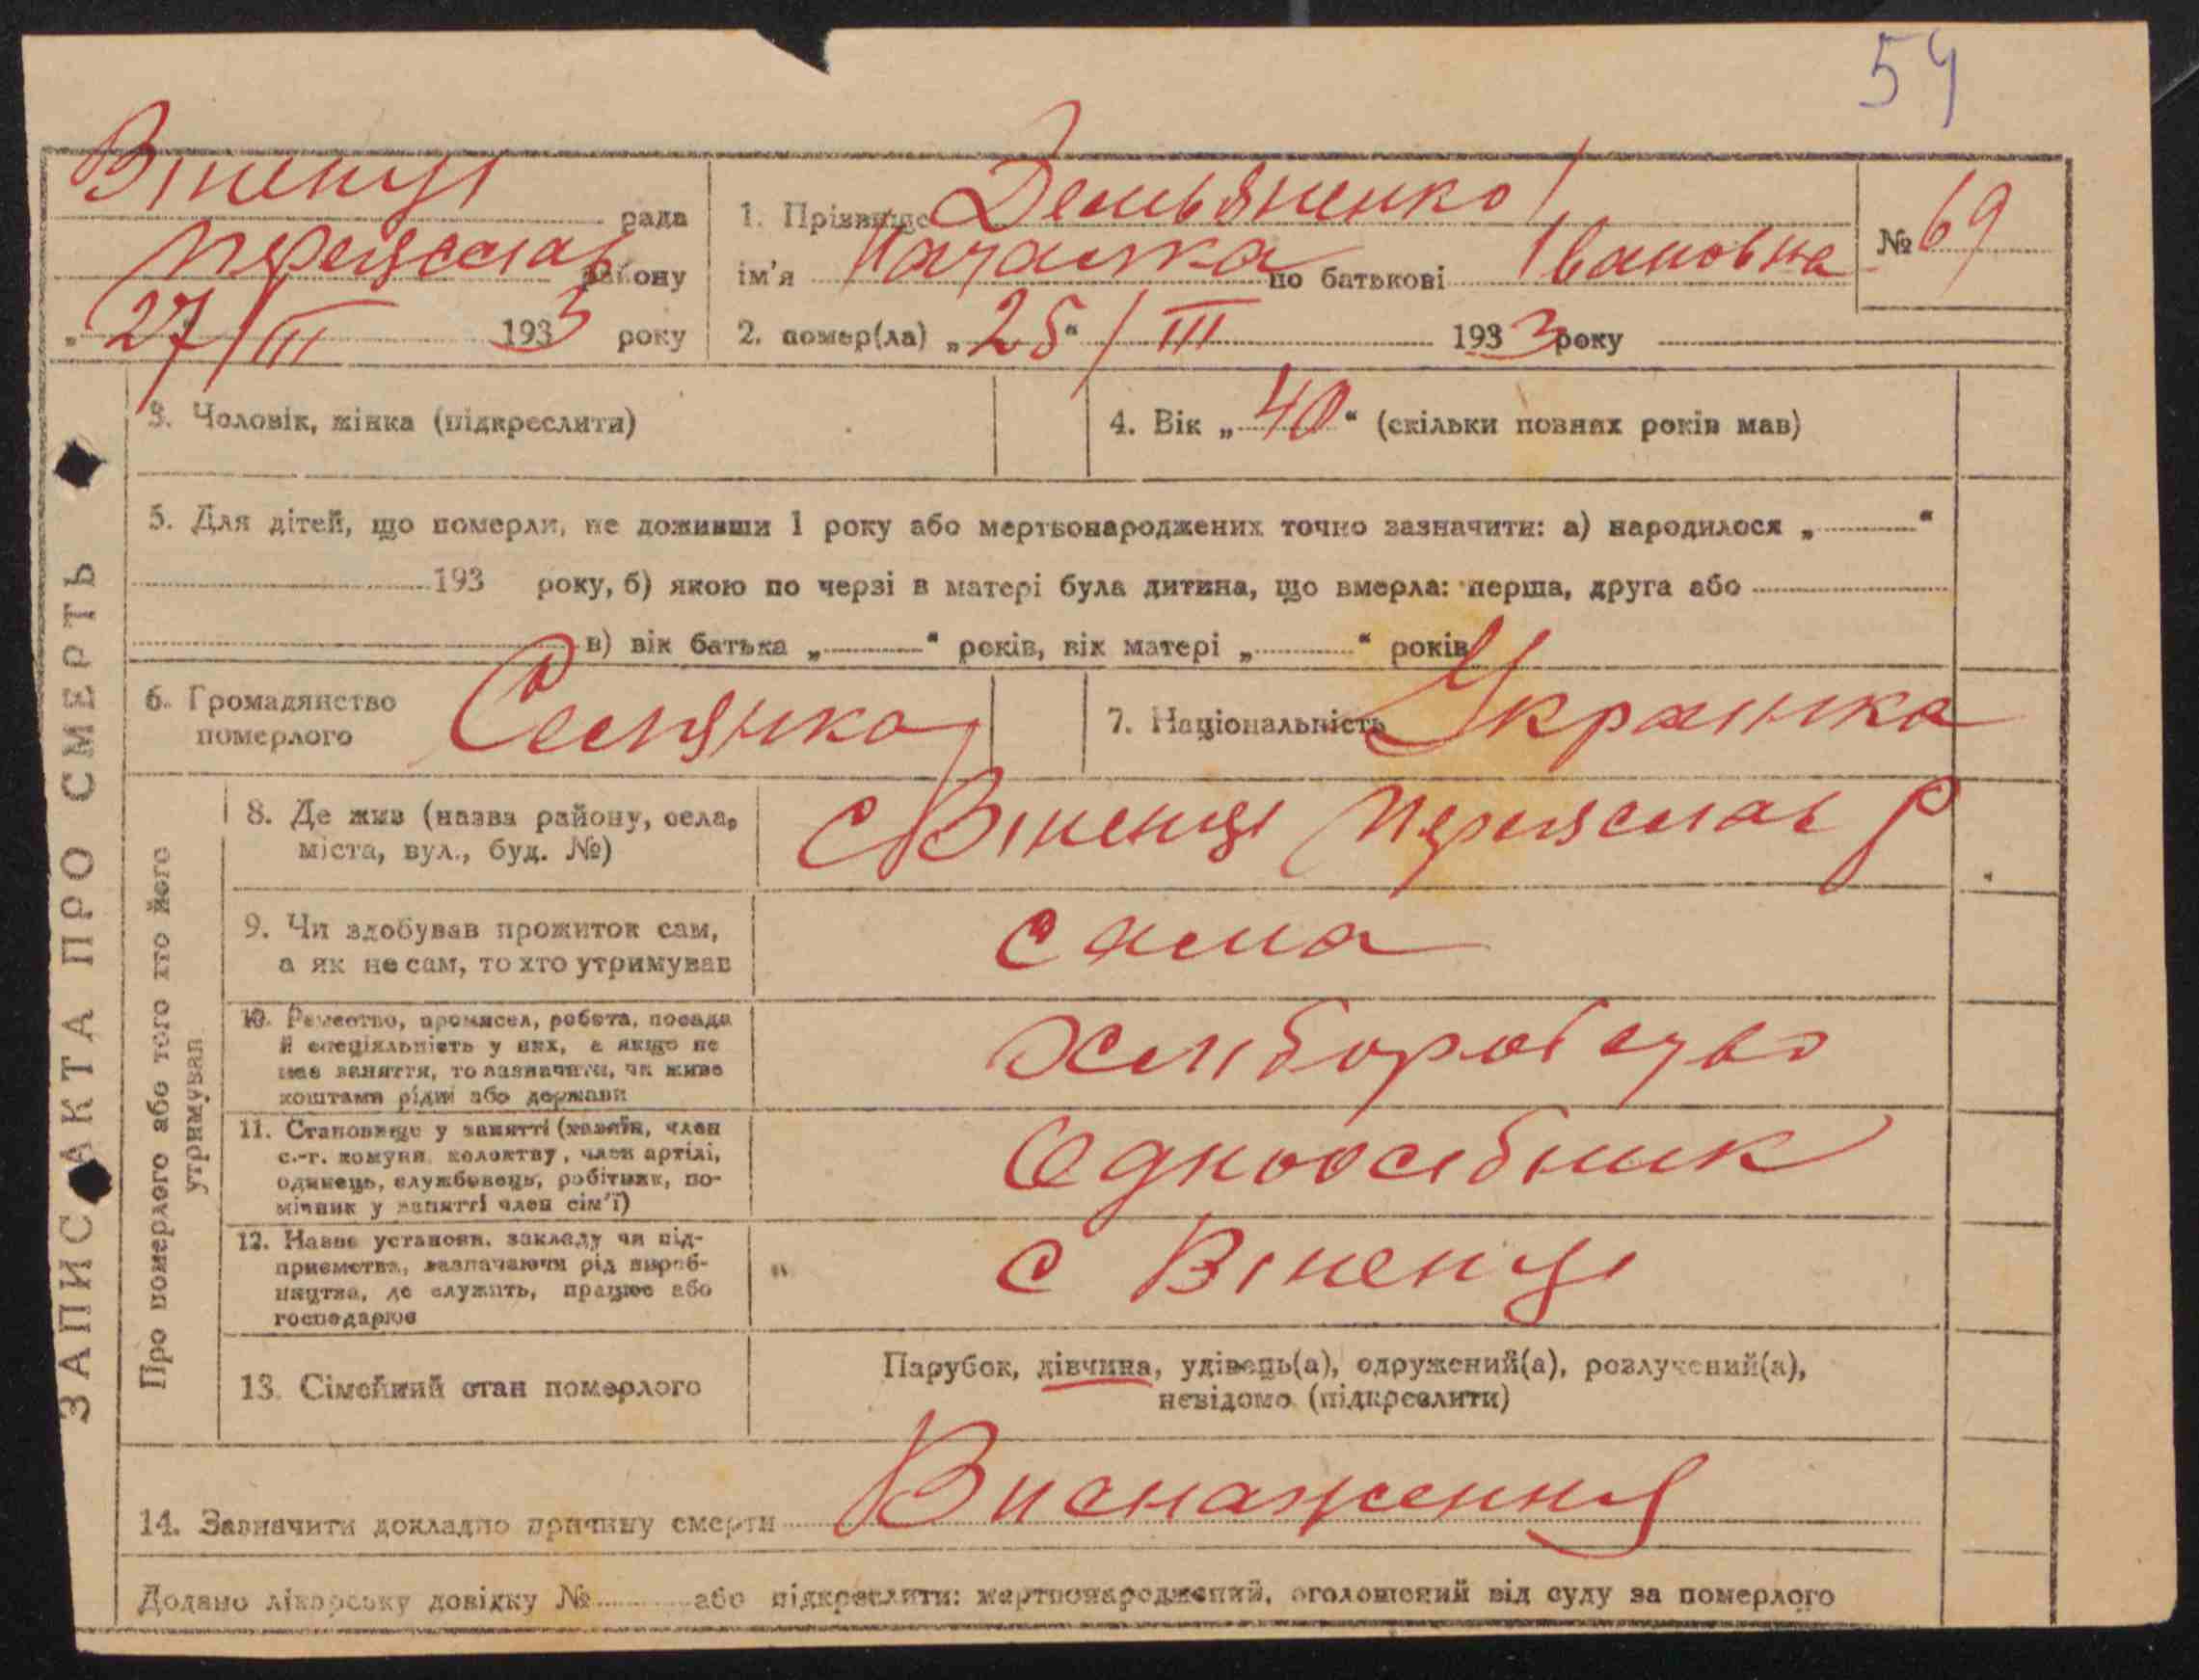 54
Віненці рада
Переяслав району
„ 27/III 1933 року
1. Прізвище Демьяненко
ім'я Наталка по батькові Івановна
№ 69
2. помер(ла) „25“/III 1933 року
3. Чоловік, жінка (підкреслити)
4. Вік „40“ (скільки повних років мав)
5. Для дітей, що померли, не доживши 1 року або мертвонароджених точно зазначити: а) народилося „ “
193 року, б) якою по черзі в матері була дитина, що вмерла: перша, друга або
в) вік батька „ “ років, вік матері „ “ років
6. Громадянство
померлого
Селянка
7. Національність Українка
ЗАПИС АКТА ПРО СМЕРТЬ
Про померлого або того хто його
утримував
8. Де жив (назва району, села,
міста, вул., буд. №)
с Віненці Переяслав р
9. Чи здобував прожиток сам,
а як не сам, то хто утримував
сама
10. Ремество, промисел, робота, посада
й спеціяльність у них, а якщо не
має заняття, то зазначити, чи живе
коштами рідні або держави
Хліборобство
11. Становище у занятті (хазяїн, член
с.-г. комуни, колективу, член артілі,
одинець, службовець, робітник, по-
мічник у занятті член сім'ї)
Одноосібник
12. Назва установи, закладу чи під-
приємства, зазначаючи рід вироб-
ництва, де служить, працює або
господарює
с Віненці
13. Сімейний стан померлого
Парубок, дівчина, удівець(а), одружений(а), розлучений(а),
невідомо (підкреслити)
14. Зазначити докладно причину смерти Виснаження
Додано лікарську довідку № або підкреслити: мертвонароджений, оголошений від суду за померлого